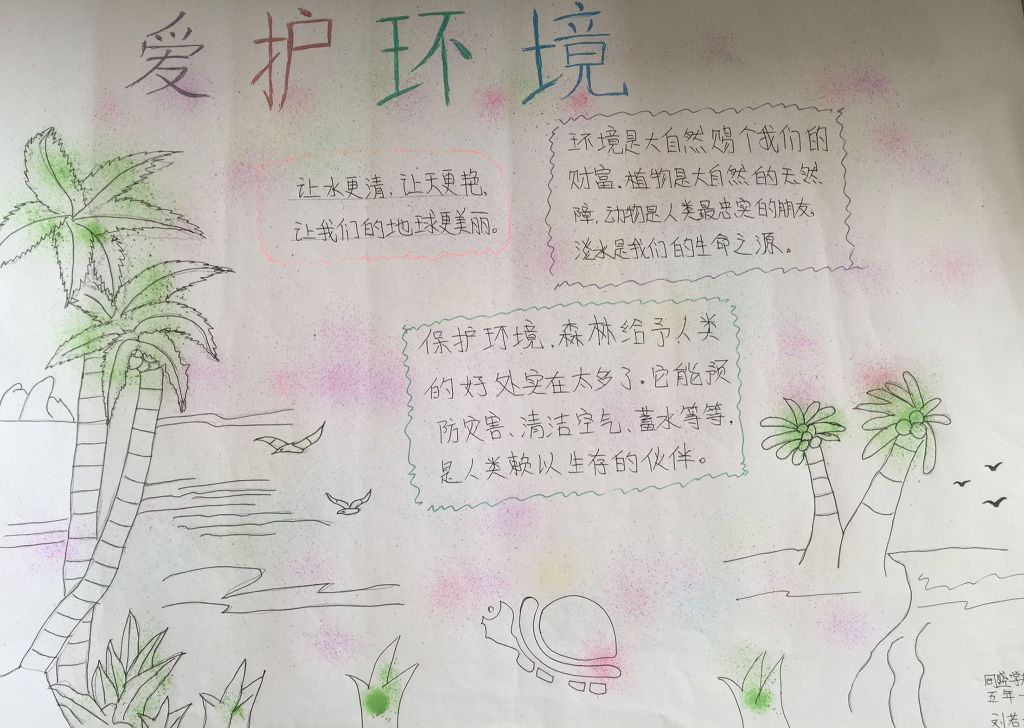 爱护环境
让水更清,让天更艳,
让我们的地球更美丽。
环境是大自然赐个我们的
财富,植物是大自然的天然
障,动物是人类最忠实的朋友,
淡水是我们的生命之源。
保护环境,森林给予人类
的好处实在太多了。它能预
防灾害、清洁空气、蓄水等等,
是人类赖以生存的伙伴。
五年一
刘若